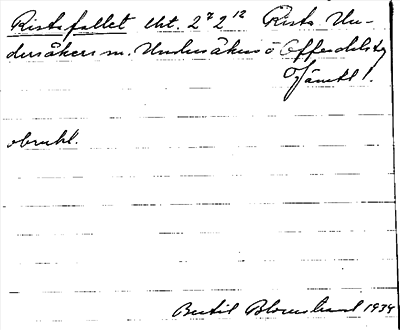 Ristafallet lht. 2⁷2¹² Rista Un-
dersåkers sn. Undersåkers o Offerdals tg
Jämtl.
obrukl.
Bertil Blomstrand 1934